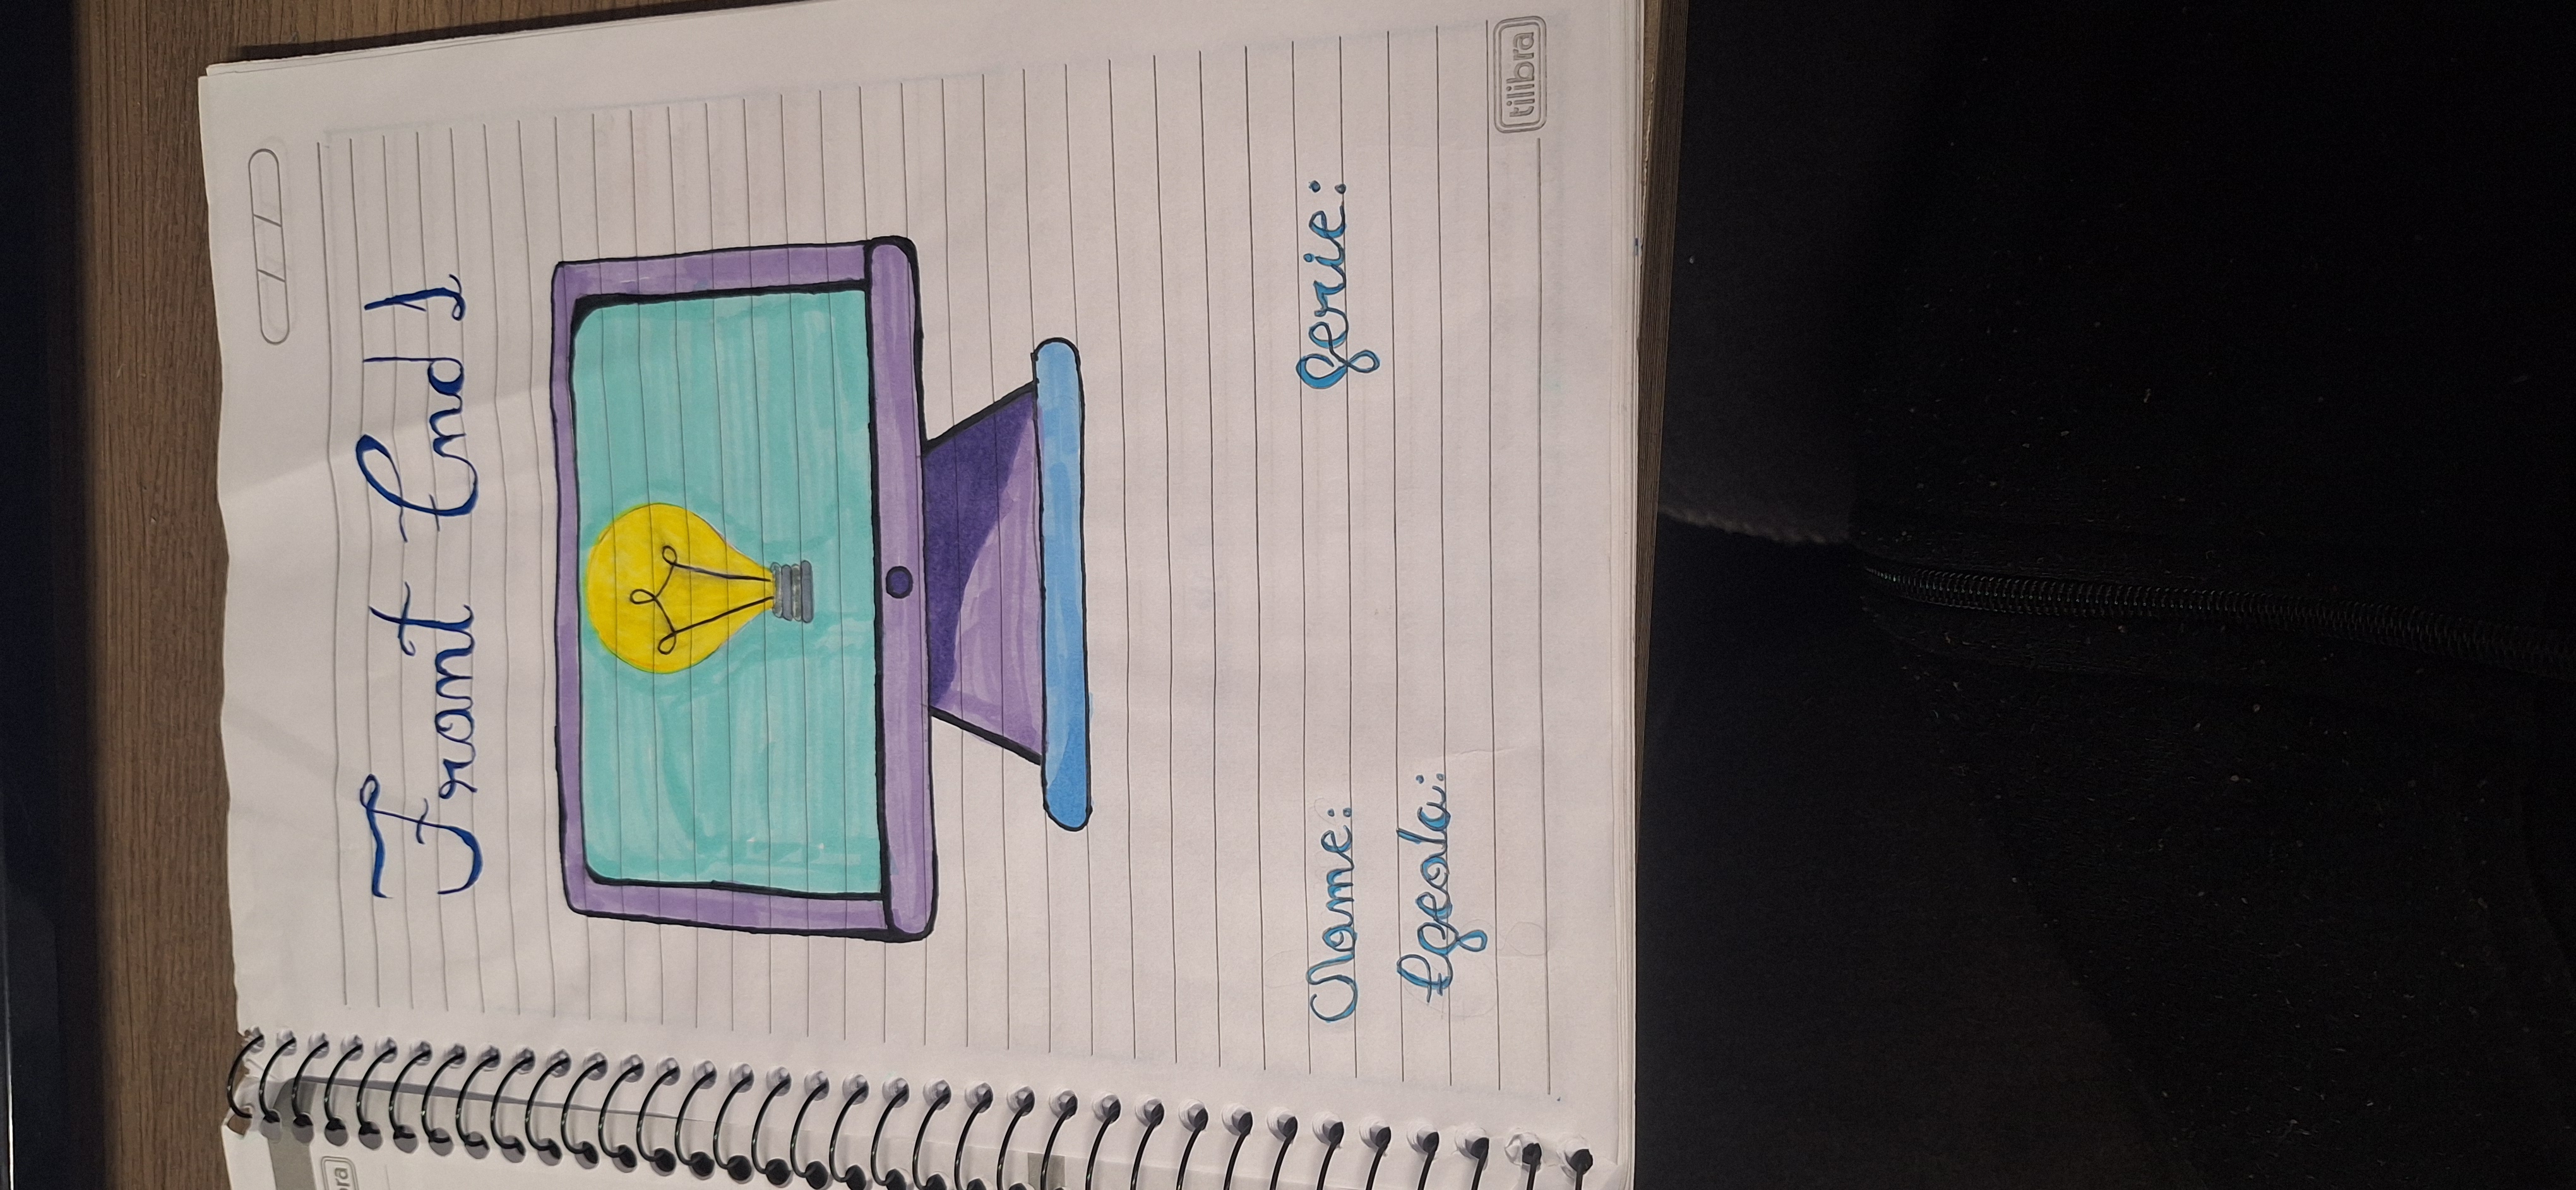 Front End 1
Nome: Serie:
Escola:
tilibra
bra